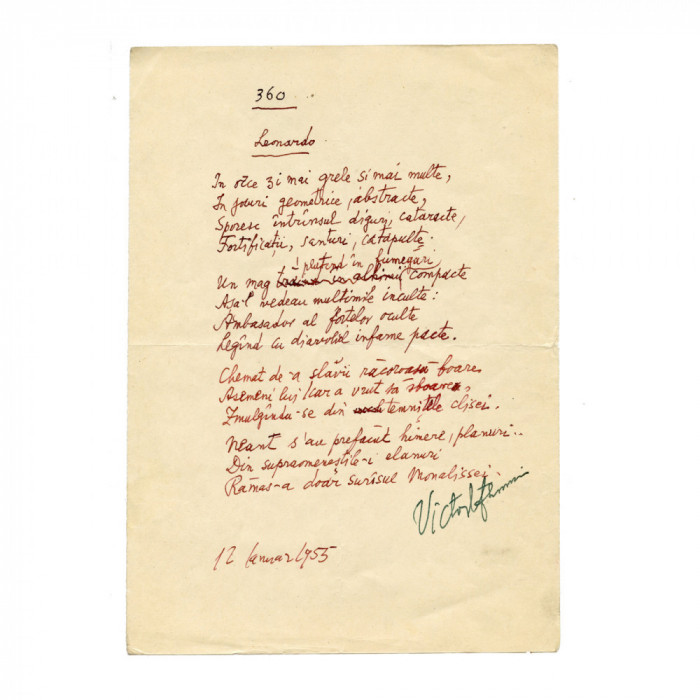 360
Leonardo
In orce zi mai grele si mai multe,
In jocuri geometrice, abstracte,
Sporesc întrînsul diguri, cataracte,
Fortificații, santuri, catapulte.
plutind în fumegări
Un mag compacte
Asa-l vedeau multimile inculte:
Ambasador al forțelor oculte
Legînd cu diavolul infame pacte.
Chemat de-a slăvii răcoroasă boare
Asemeni lui Icar a vrut să sboare,
Zmulgîndu-se din temnițele clisei.
Neant s'au prefăcut himere, planuri..
Din supraomeneștile-i elanuri
Rămas-a doar surîsul Monalissei.
Victor Eftimiu
12 Ianuar 1955